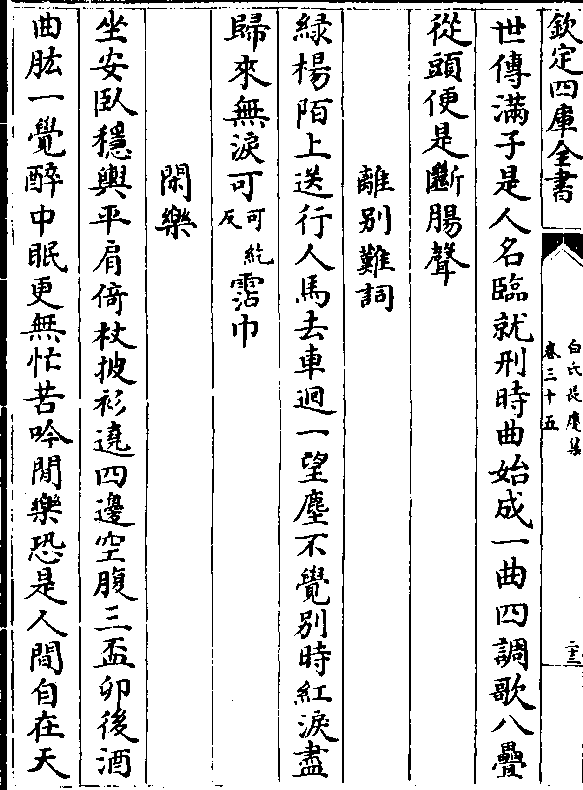 欽定四庫全書
白氏長慶集
卷三十五
二十三
世傳滿子是人名臨就刑時曲始成一曲四調歌八疊
從頭便是斷腸聲
離别難詞
緑楊陌上送行人馬去車迴一望塵不覺别時紅淚盡
歸來無淚可可紇反霑巾
閑樂
坐安臥穩輿平肩倚杖披衫遶四邊空腹三盃卯後酒
曲肱一覺醉中眠更無忙苦吟閒樂恐是人間自在天